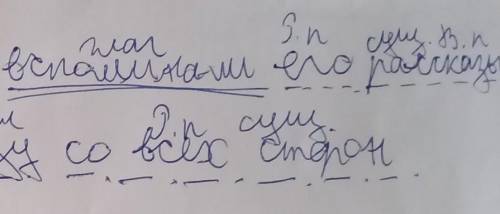 глаг Р.п сущ. В.п
вспоминали его рассказы
Р.п сущ.
со всех сторон